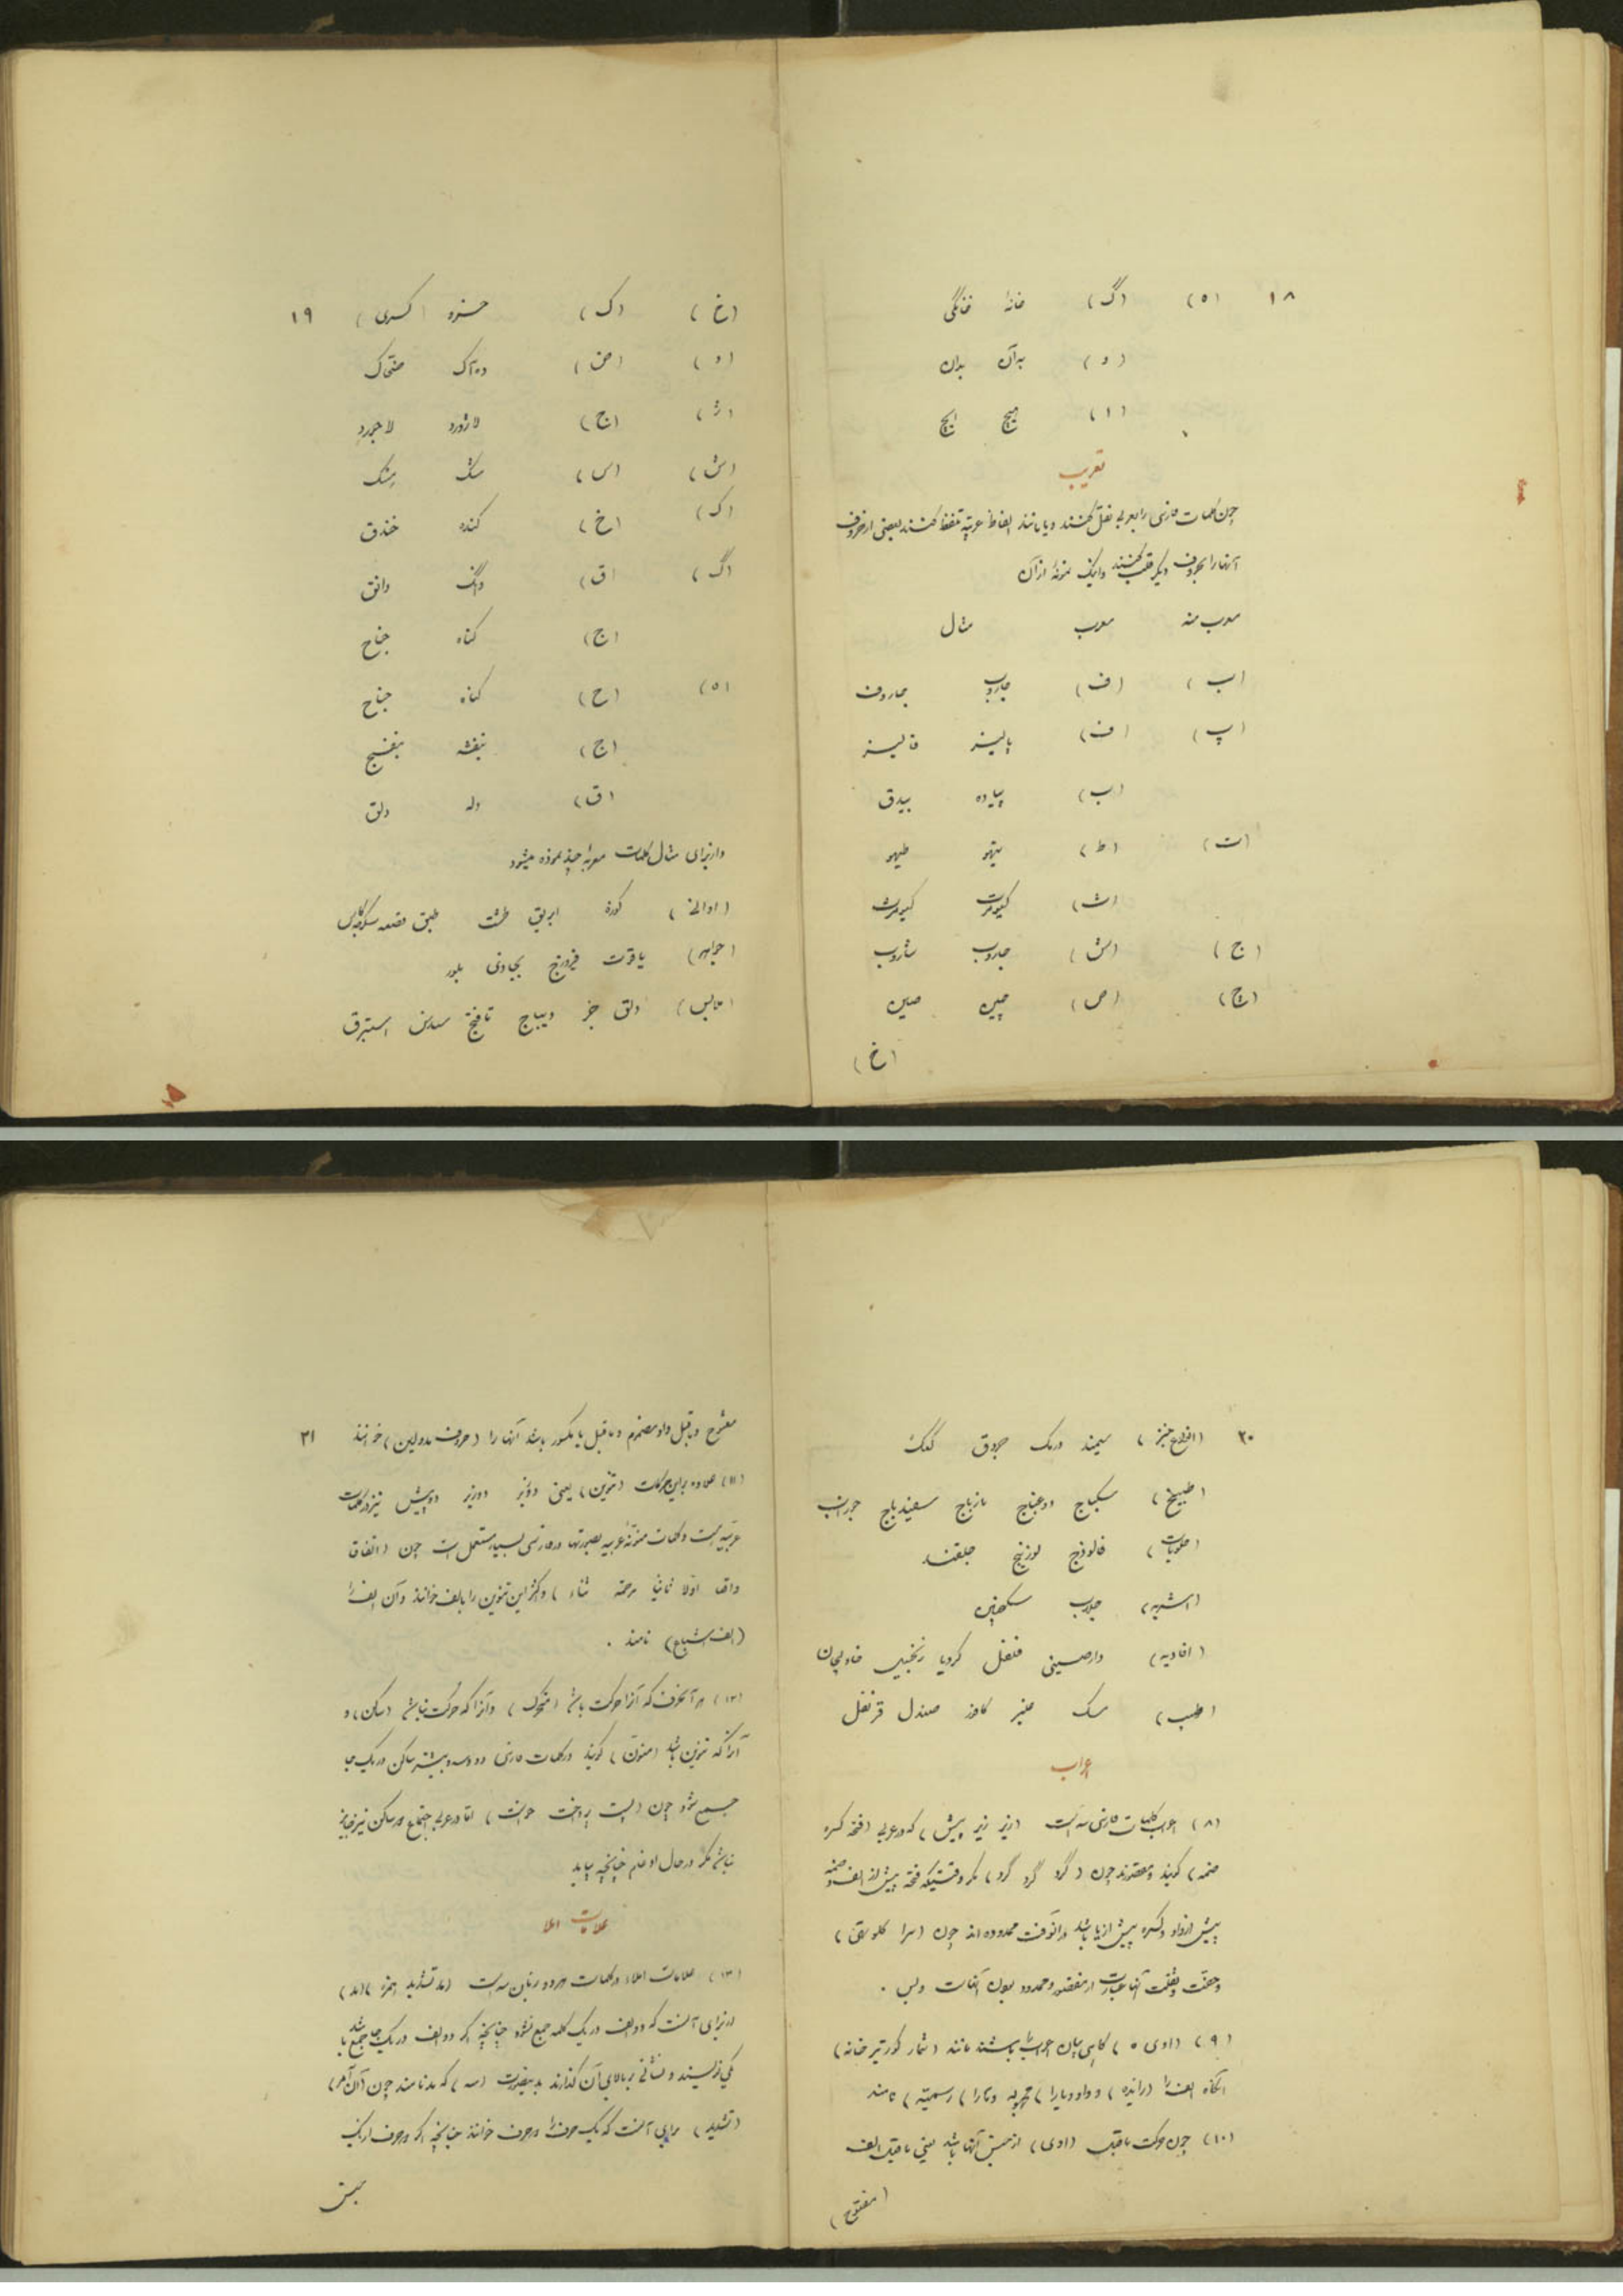 ۱۸ (ه) (گ) خانه خانگی
(د) به آن بدان
(ا) هیچ ایچ
تعریب
چون کلمات فارسی را بعربی نقل کنند و یا مانند الفاظ عربیّه تلفظ کنند بعضی از حروف
آنها را بحروف دیگر قلب کنند و اینک نمونهٔ از آن
معرب منه معرب مثال
(ب) (ف) جاروب جاروف
(پ) (ف) پالیز فالیز
(ب) پیاده بیدق
(ت) (ط) تیهو طیهو
(ث) کیومرت کیومرث
(ج) (ش) جاروب شاروب
(چ) (ص) چین صین
(خ)
(خ) (ک) خسرو (کسری) ۱۹
(د) (ض) ده‌آک ضحّاک
(ژ) (ج) لاژورد لاجورد
(ش) (س) مشک مسک
(ک) (خ) کنده خندق
(گ) (ق) دانگ دانق
(ج) گناه جناح
(ه) (ح) گناه جناح
(ج) بنفشه بنفسج
(ق) دله دلق
و از برای مثال کلمات معربهٔ چند نموده میشود
(اوانی) کوزه ابریق طشت طبق قصعه سکرجه کاس
(جواهر) یاقوت فیروزج بجادی بلور
(ملابس) دلق خز دیباج تافتج سندس استبرق
۲۰ (انواع خبز) سمید درمک جردق کعک
(طبیخ) سکباج دوغباج نارباج سفیدباج جوراب
(حلویات) فالوذج لوزینج جلقند
(اشربه) جلاب سکنجبین
(افاویه) دارصینی فلفل کرویا زنجبیل خاولنجان
(طیب) مسک عنبر کافور صندل قرنفل
اعراب
(۸) اعراب کلمات فارسی سه است (زبر زیر پیش) که در عربی (فتحه کسره
ضمه) گویند و مقصورند چون (گرد گرد گرد) مگر وقتیکه فتحه پیش از الف و ضمه
پیش از واو و کسره پیش از یا باشد در آنوقت ممدوده اند چون (سرا گلو تقی)
و خفت و ثقلت آنها عبارت از مقصور و ممدود بودن آنهاست و بس .
(۹) (ا و ی ه) گاهی بیان اعراب را باشند مانند (شمار کور تیر خانه)
آنگاه الف را (زائده) و واو و یا را (مجهوله) و ها را (رسمیّه) نامند
(۱۰) چون حرکت ماقبل (ا و ی) از جنس آنها باشد یعنی ماقبل الف
(مفتوح)
مفتوح و ماقبل واو مضموم و ماقبل یا مکسور باشد آنها را (حروف مد و لین) خوانند ۲۱
(۱۱) علاوه بر این حرکات (تنوین) یعنی دو زبر دو زیر دو پیش نیز در کلمات
عربیّه است و کلمات منونهٔ عربیه بصورتها در فارسی بسیار مستعمل است چون (اتفاقا
واقعا اوّلا ثانیا مرحمة ثناء) و اکثر این تنوین را بالف خوانند و آن الف را
(الف اشباع) نامند .
(۱۲) هر آنحرف که آنرا حرکت باشد (متحرک) و آنرا که حرکت نباشد (ساکن) و
آنرا که تنوین باشد (منوّن) گویند در کلمات فارسی دو و سه و بیشتر ساکن در یک جا
جمع شود چون (پست پرداخت خواست) امّا در عربی اجتماع دو ساکن نیز جایز
نباشد مگر در حال ادغام چنانچه بیاید
علامات املا
(۱۳) علامات املاء در کلمات هر دو زبان سه است (مد تشدید همزه) (مد)
از برای آنست که دو الف در یک کلمه جمع نشود چنانچه اگر دو الف در یک جا جمع باشد
یکی نویسند و نشانی بر بالای آن گذارند بدینصورت (~) که مد نامند چون (آن آمر)
(تشدید) برای آنست که یک حرف را دو حرف خوانند چنانچه اگر دو حرف از یک
جنس